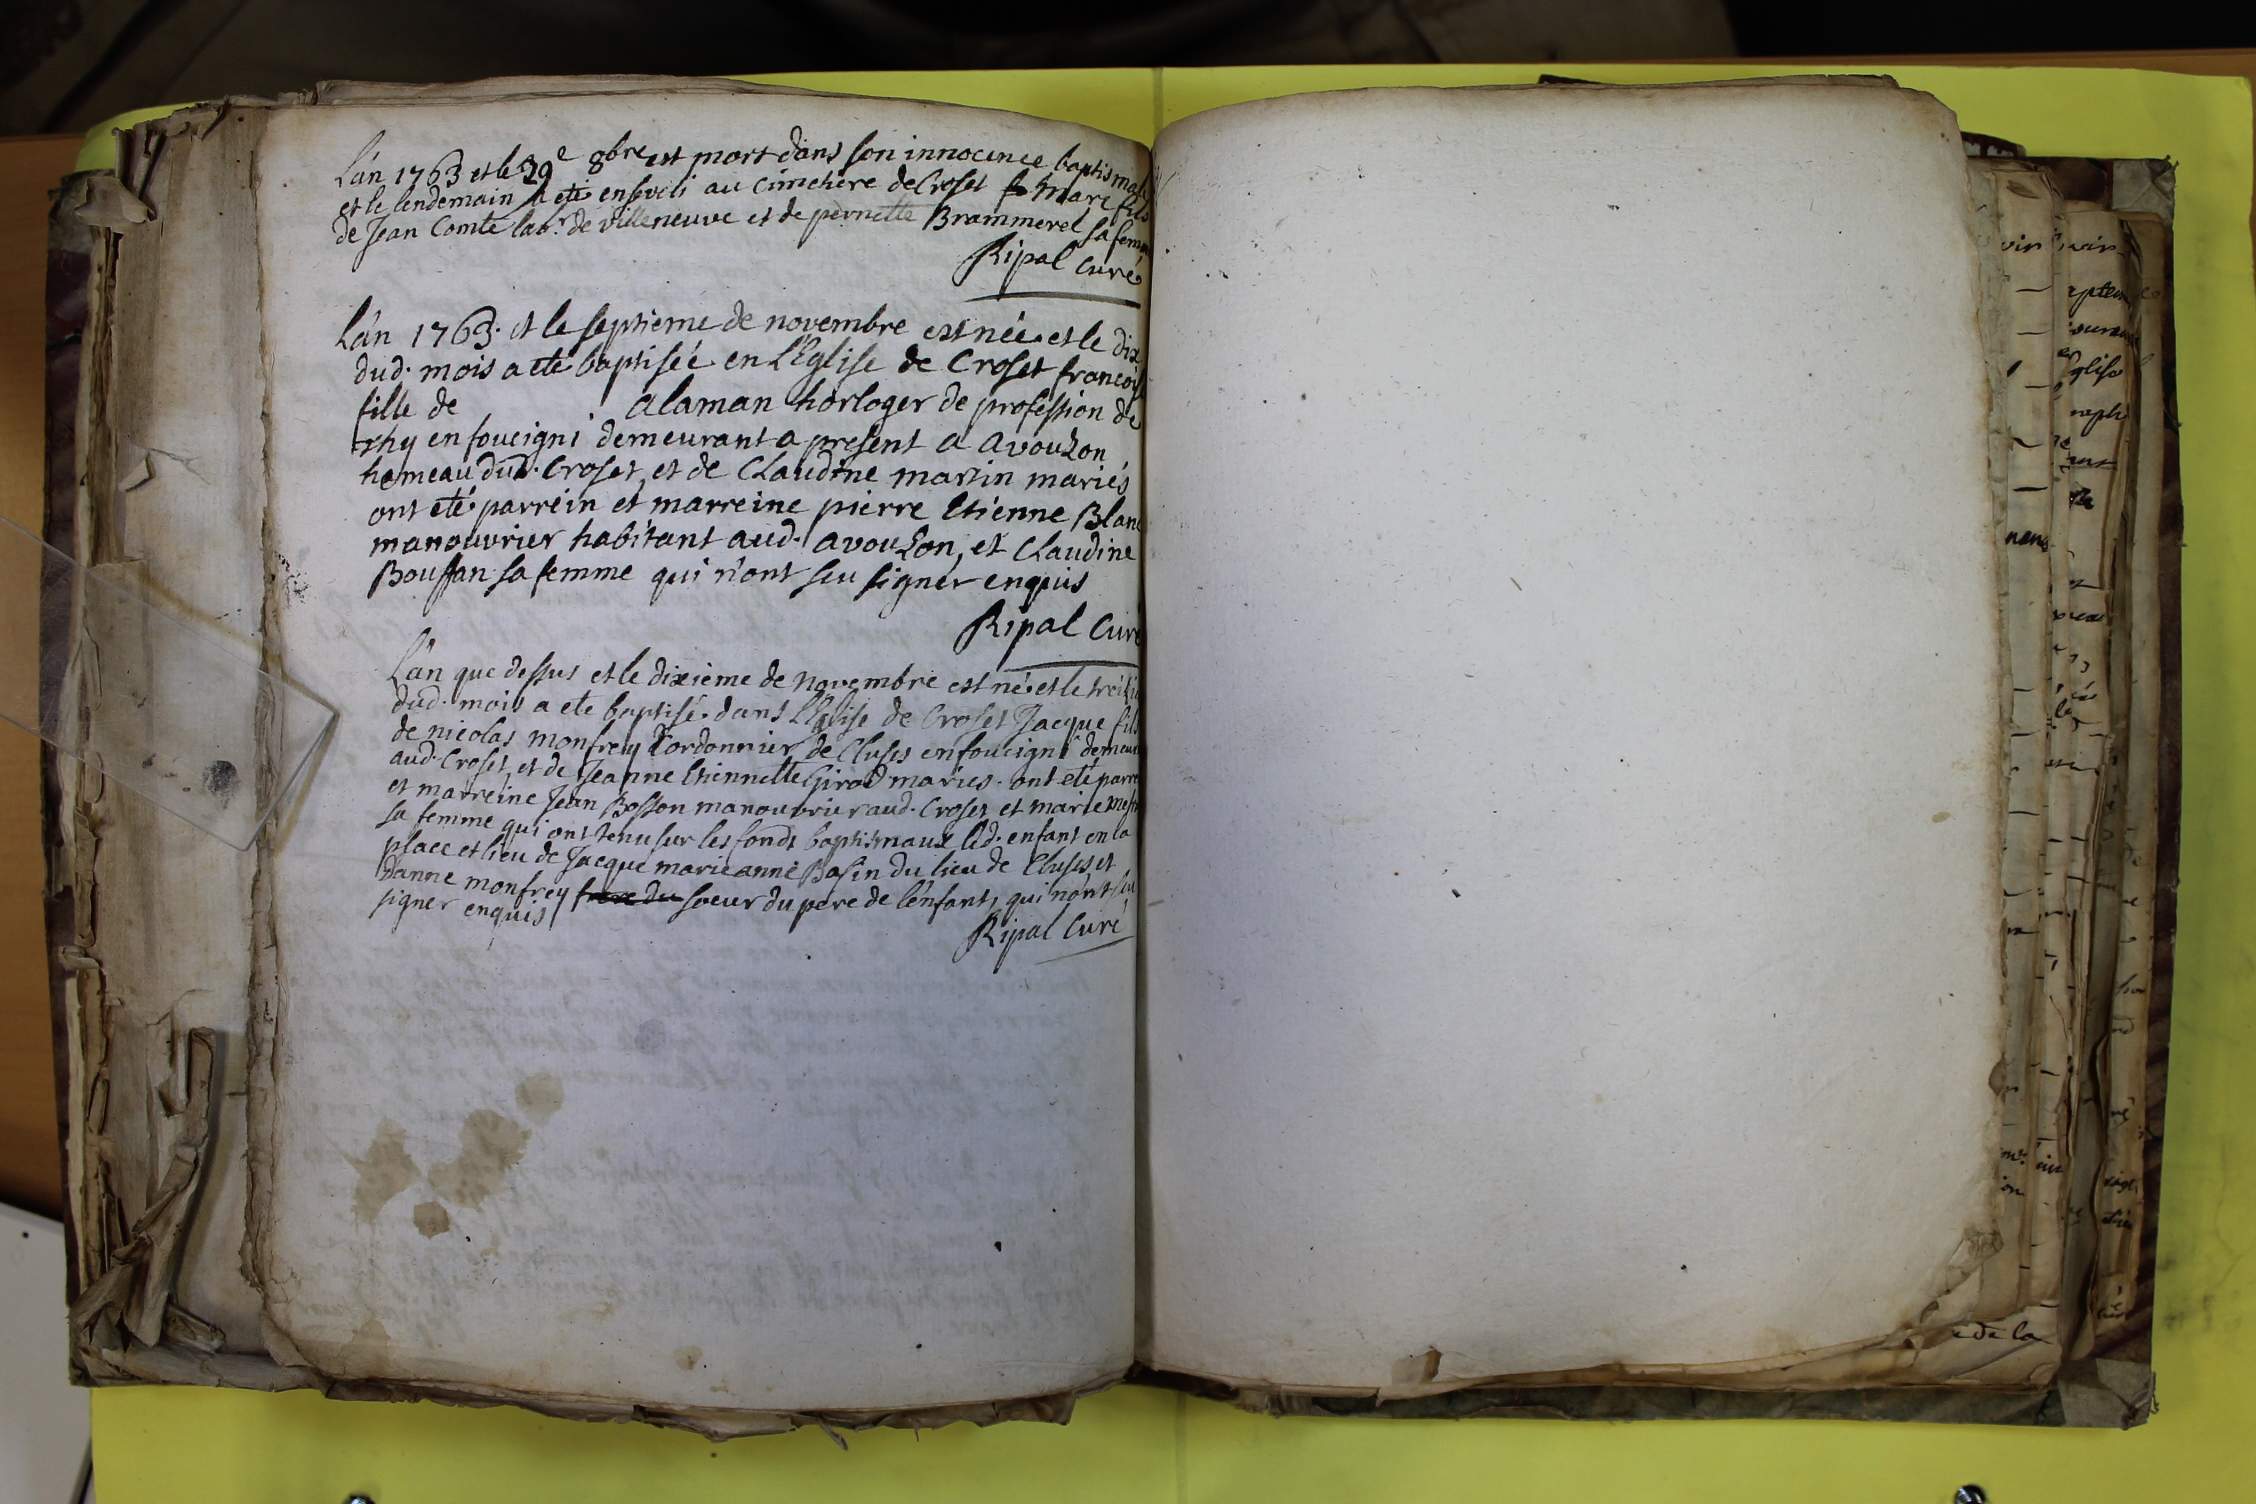 L'an 1763 et le 29e 8bre est mort dans son innocence baptismale
et le lendemain a eté enseveli au cimetiere de Croset Marc fils
de Jean Comte labr. de villeneuve et de pernette Brammerel sa femme
Ripal Curé
L'an 1763. et le septieme de novembre est née et le dix
dud. mois a eté baptiseé en L'Eglise de Croset francoise
fille de alaman horloger de profession de
thy en foucigni demeurant a present a avouzon
hameau dud. Croset, et de Claudine martin mariés
ont eté parrein et marreine pierre Etienne Blanc
manouvrier habitant aud. avouzon, et Claudine
Bouffan sa femme qui n'ont seu signer enquis
Ripal Curé
L'an que dessus et le dixieme de novembre est né et le treizie
dud. mois a ete baptisé dans L'Eglise de Croset Jacque fils
de nicolas monfrey Cordonnier de Cluses en foucigni demeur
aud. Croset, et de Jeanne Etiennette Girod mariés. ont eté parre
et marreine Jean Bosson manouvrier aud. Croset et marie
sa femme qui ont tenu sur les fonds baptismaux led. enfant en la
place et lieu de Jacque marie anne Basin du lieu de Cluses, et
Danne monfrey frere du soeur du pere de l'enfant, qui n'ont seu
signer enquis
Ripal Curé
e de la